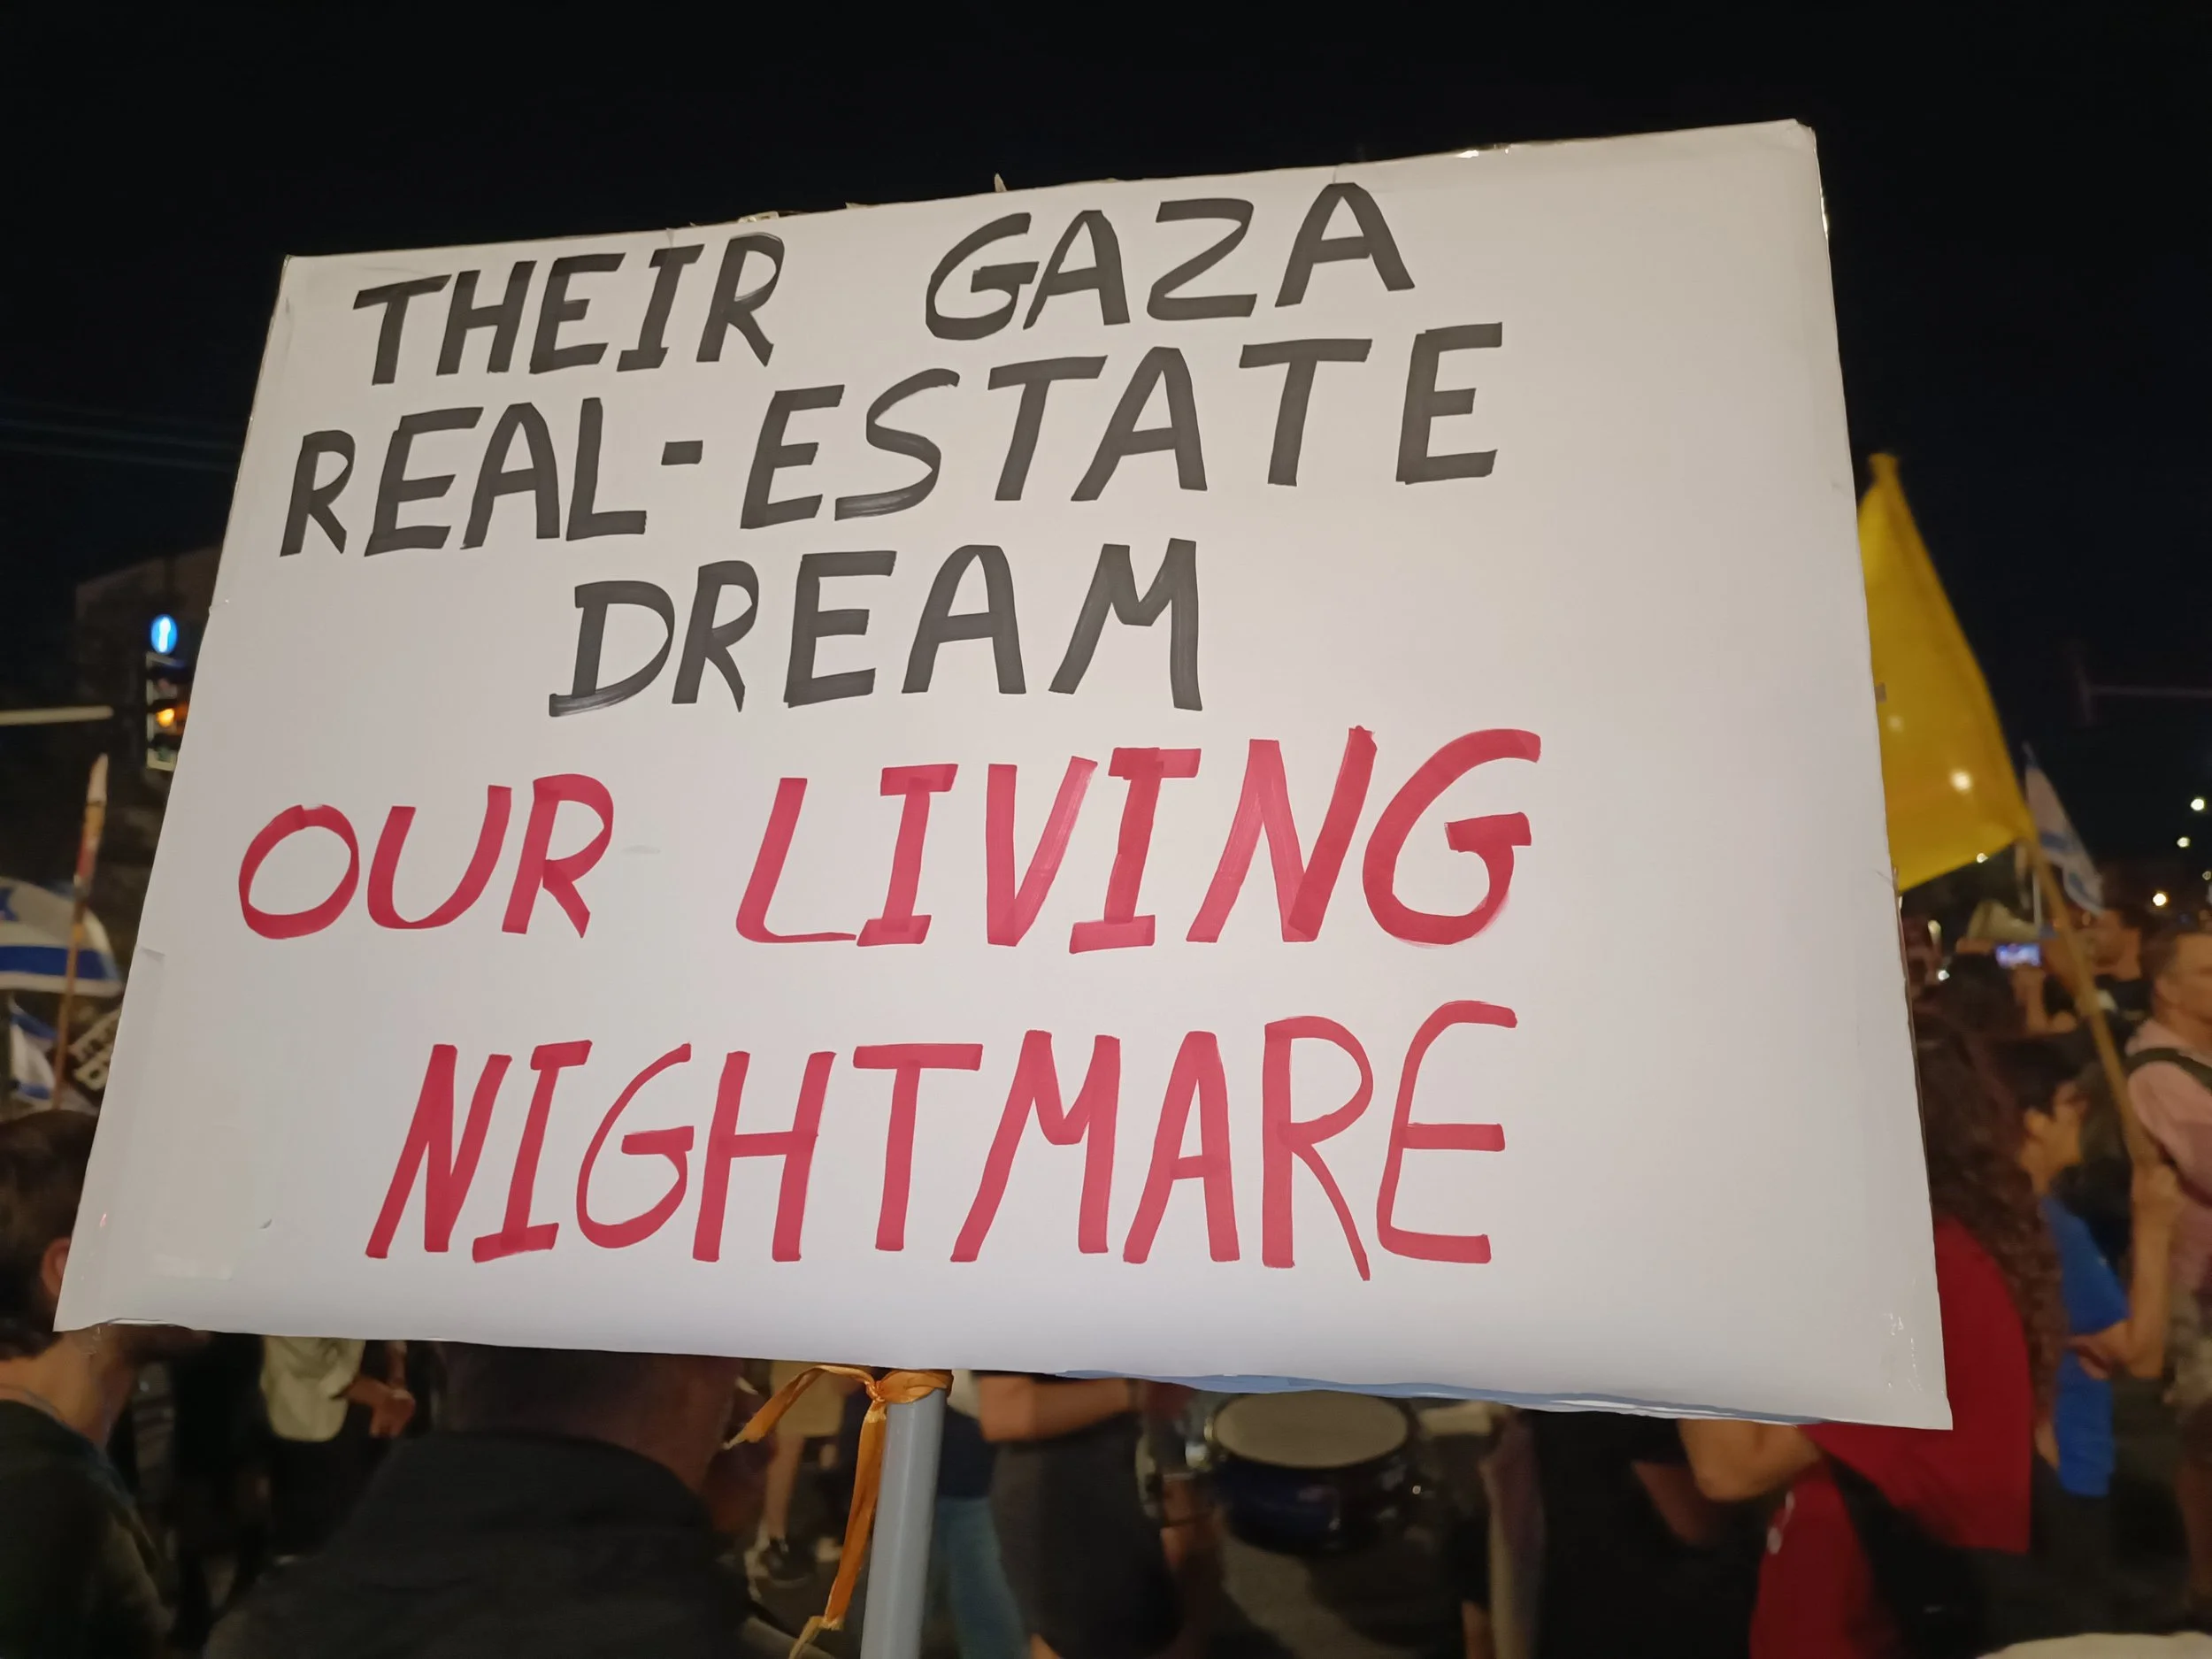 THEIR GAZA
REAL-ESTATE
DREAM
OUR LIVING
NIGHTMARE